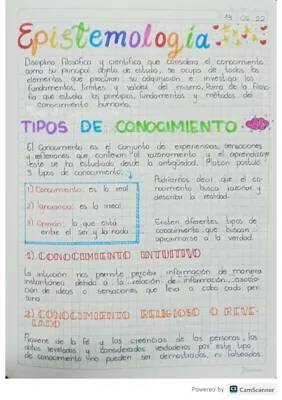 19 02 22
Epistemología
Disciplina filosófica y científica que considera el conocimiento
como su principal objeto de estudio, se ocupa de todos los
elementos que procuran su adquisición e investiga los
fundamentos, límites y validez del mismo. Rama de la filoso-
fía que estudia los principios, fundamentos y métodos del
conocimiento humano.
TIPOS DE CONOCIMIENTO
El Conocimiento es el conjunto de experiencias, sensaciones
y reflexiones que conllevan al razonamiento y el aprendizaje
este se ha estudiado desde la antigüedad. Platón postuló
3 tipos de conocimiento:
1) Conocimiento: es lo real
2) Ignorancia: es lo irreal
3) Opinión: lo que está
entre el ser y la nada
Podríamos decir que el co-
nocimiento busca razonar y
describir la realidad.
Existen diferentes tipos de
conocimiento que buscan
aproximarse a la verdad.
1) CONOCIMIENTO INTUITIVO
La intuición nos permite percibir información de manera
instantánea debido a la relación de información, asocia-
ción de ideas o sensaciones que lleva a cabo cada per-
sona.
2) CONOCIMIENTO RELIGIOSO O REVE-
LADO
Proviene de la fé y las creencias de las personas, los
datos revelados y considerados verdaderos por este tipo
de conocimiento no pueden ser demostrados, ni falseados.
Powered by CS CamScanner